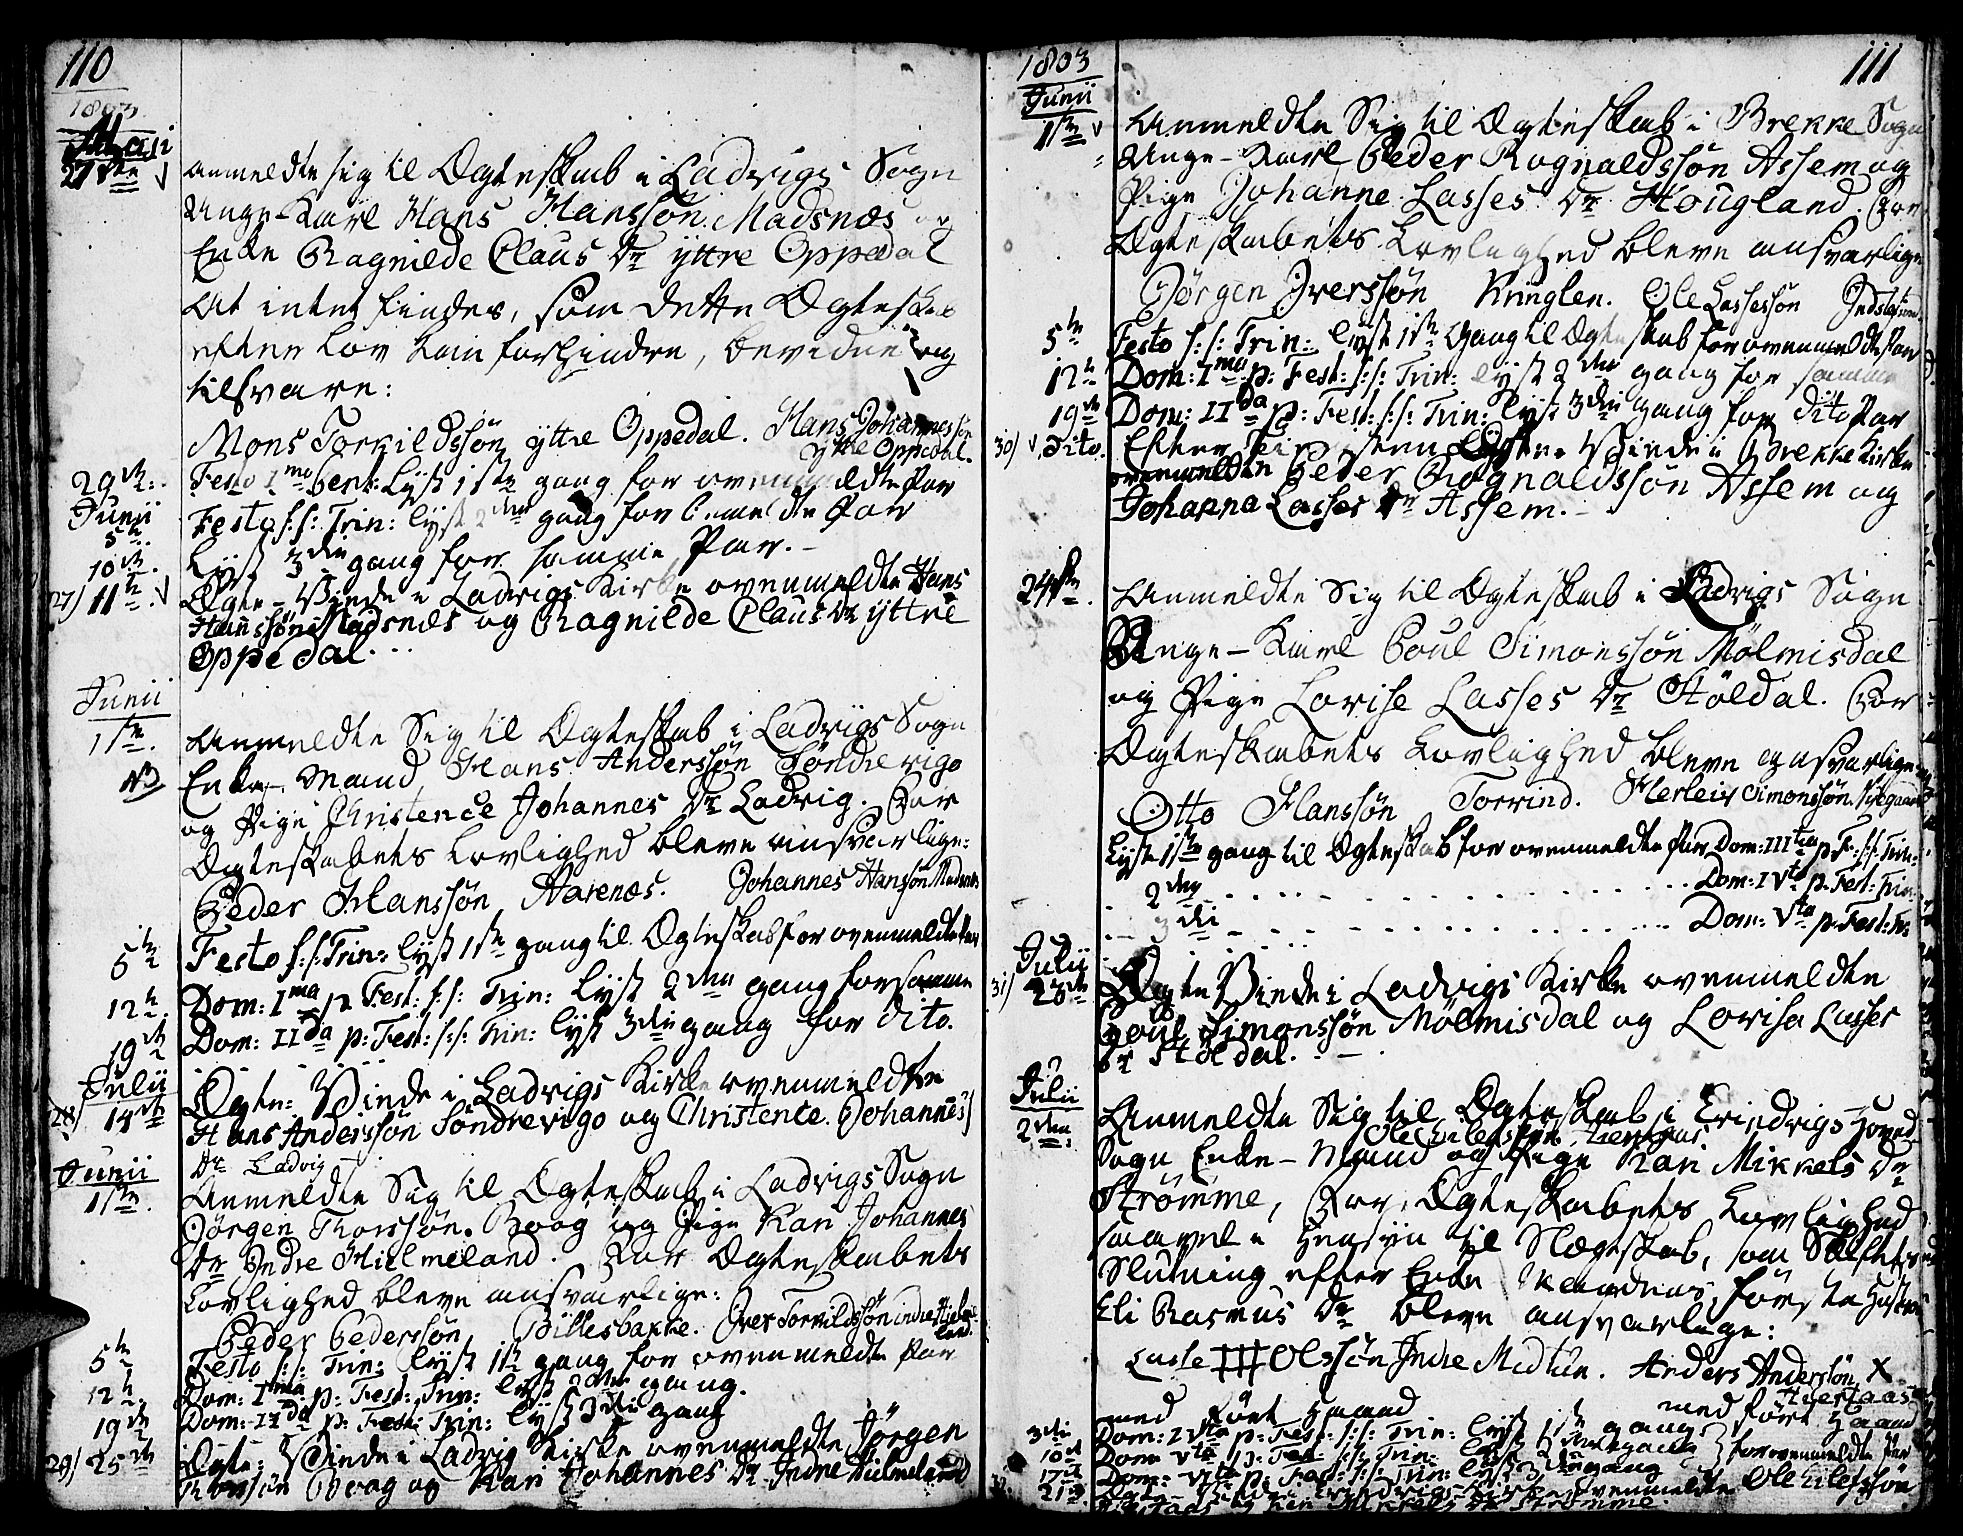 110
1803
Maji
27de √ anmeldte sig til Ægteskab i Ladvigs Sogn
Unge-Karl Hans Hanssøn Madsnæs og
Enke Ragnilde Claus Dr ÿttre Oppedal
At intet findes, som dette Ægteskab
efter Lov kan forhindre, bevidne og
tilsvare:
Mons Torkildssøn ÿttre Oppedal. Hans Johannessøn
ÿttre Oppedal.
29de. Festo 1ma Pent: Lÿst 1ste gang for ovenmeldte Par
Junii
5te. Festo s:s: Trin: lÿst 2den gang for bemeldte Par
10de. Lÿst 3die gang for samme Par.-
27) 11te. √ Ægte-Viede i Ladvigs Kirke ovenmeldte Hans
Hanssøn Madsnæs og Ragnilde Claus Dr ÿttre
Oppedal...
Junii
1ste. Anmeldte Sig til Ægteskab i Ladvigs Sogn
NB Enke-Mand Hans Anderssøn Søndrevigo
og Pige Christence Johannes Dr Ladvig. For
Ægteskabets Lovlighed bleve ansvarlige:
Peder Hanssøn Harenæs. Johannes Hanssøn Madsnæs
5te Festo s:s: Trin: lÿst 1ste gang til Ægteskab for ovenmeldte Par
12te. Dom: Ima p. Fest: s:s: Trin: lÿst 2den gang for samme
19de Dom: IIda p: Fest: s:s: Trin: lÿst 3die gang for dito.
Julii
28) 14de Ægte: Viede i Ladvigs Kirke ovenmeldte
Hans Anderssøn Søndrevigo og Christence Johannes
Dr Ladvig
Junii
1ste. Anmeldte Sig til Ægteskab i Ladvigs Sogn
Jørgen Thorssøn Boog og Pige Kari Johannes
Dr Indre Hielmeland. For Ægteskabets
Lovlighed bleve ansvarlige:
Peder Pederssøn Billesbakke. Iver Torkildssøn indre Hielmeland.
5te Festo s:s: Trin: lÿst 1ste gang for ovenmeldte Par
12te Dom: Ima p: Fest: Trin: lÿst 2den gang.
19de Dom: IIda p: Fest: Trin: lÿst 3die gang
29) 25de Ægte: Viede i Ladvig Kirke ovenmeldte Jørgen
Thorssøn Boog og Kari Johannes Dr Indre Hielmeland
111
1803
Junii
11te √ Anmeldte Sig til Ægteskab i Brekke Sogn
Unge-Karl Peder Rognaldssøn Assem og
Pige Johanne Lasses Dr Hougland. For
Ægteskabets Lovlighed bleve ansvarlige
Jørgen Iverssøn Kringlen. Ole Lassessøn
5te Festo s:s: Trin: lÿst 1ste Gang til Ægteskab for ovenmeldte Par
12te Dom: Ima p: Fest: s:s: Trin: lÿst 2den gang for samme
19de Dom: IIda p: Fest: s:s: Trin: lÿst 3die gang for dito Par
30) √ Dito. Efter Ægte-Viede i Brekke Kirke
ovenmeldte Peder Rognaldssøn Assem og
Johanna Lasses Dr Assem.-
24de. Anmeldte Sig til Ægteskab i Ladvigs Sogn
Unge-Karl Poul Simonssøn Mølmisdal
og Pige Lovise Lasses Dr Støldal. For
Ægteskabets Lovlighed bleve ansvarlige
Otto Hanssøn Torvind. Herleiv Simonssøn Nÿegaard
Lÿst 1ste gang til Ægteskab for ovenmeldte Par, Dom: IIItia p: F: s:s: Trin:
2den - - - Dom: IVta p. Fest: Trin:
3die - - - Dom: Vta p: Fest: Tr:
Julii
31) 20de Ægte Viede i Ladvigs Kirke ovenmeldte
Poul Simonssøn Mølmisdal og Lovisa Lasses
Dr Støldal. -
Julii
2den: Anmeldte Sig til Ægteskab i Evindvigs Hoved
Sogn Enke-Mand og Pige Kari Mikkels Dr
Strømme, For Ægteskabets Lovlighed
saavel i Hensÿn til Slægtskab, som Skiftets
Slutning efter Enke Mandens første Hustru
Eli Rasmus Dr bleve ansvarlige:
Lasse Olssøn Indre Midtun. Anders Anderssøn X
med ført Haand med ført Haand
3die Dom: IVta p: Fest: s:s: Trin: lÿst 1ste gang
10de Dom: Vta p: Fest: s:s: Trin: lÿst 2den gang for ovenmeldte Par
17de Dom: VIta p: Fest: s:s: Trin: lÿst 3die gang
21de Ægte-Viede i Evindvigs Kirke ovenmeldte Ole
og Kari Mikkels Dr Strømme.